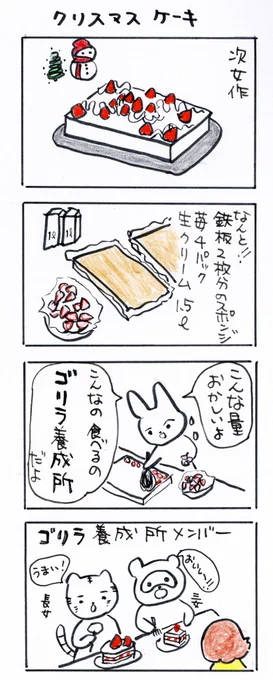 クリスマス ケーキ
次女作
なんと!!
鉄板2枚分のスポンジ
苺4パック
生クリーム 1.5ℓ
1ℓ
1ℓ
こんな量
おかしいよ
こんなの食べるの
ゴリラ養成所
だよ
ゴリラ養成所メンバー
うまい!
長女
おいしい!!
三女